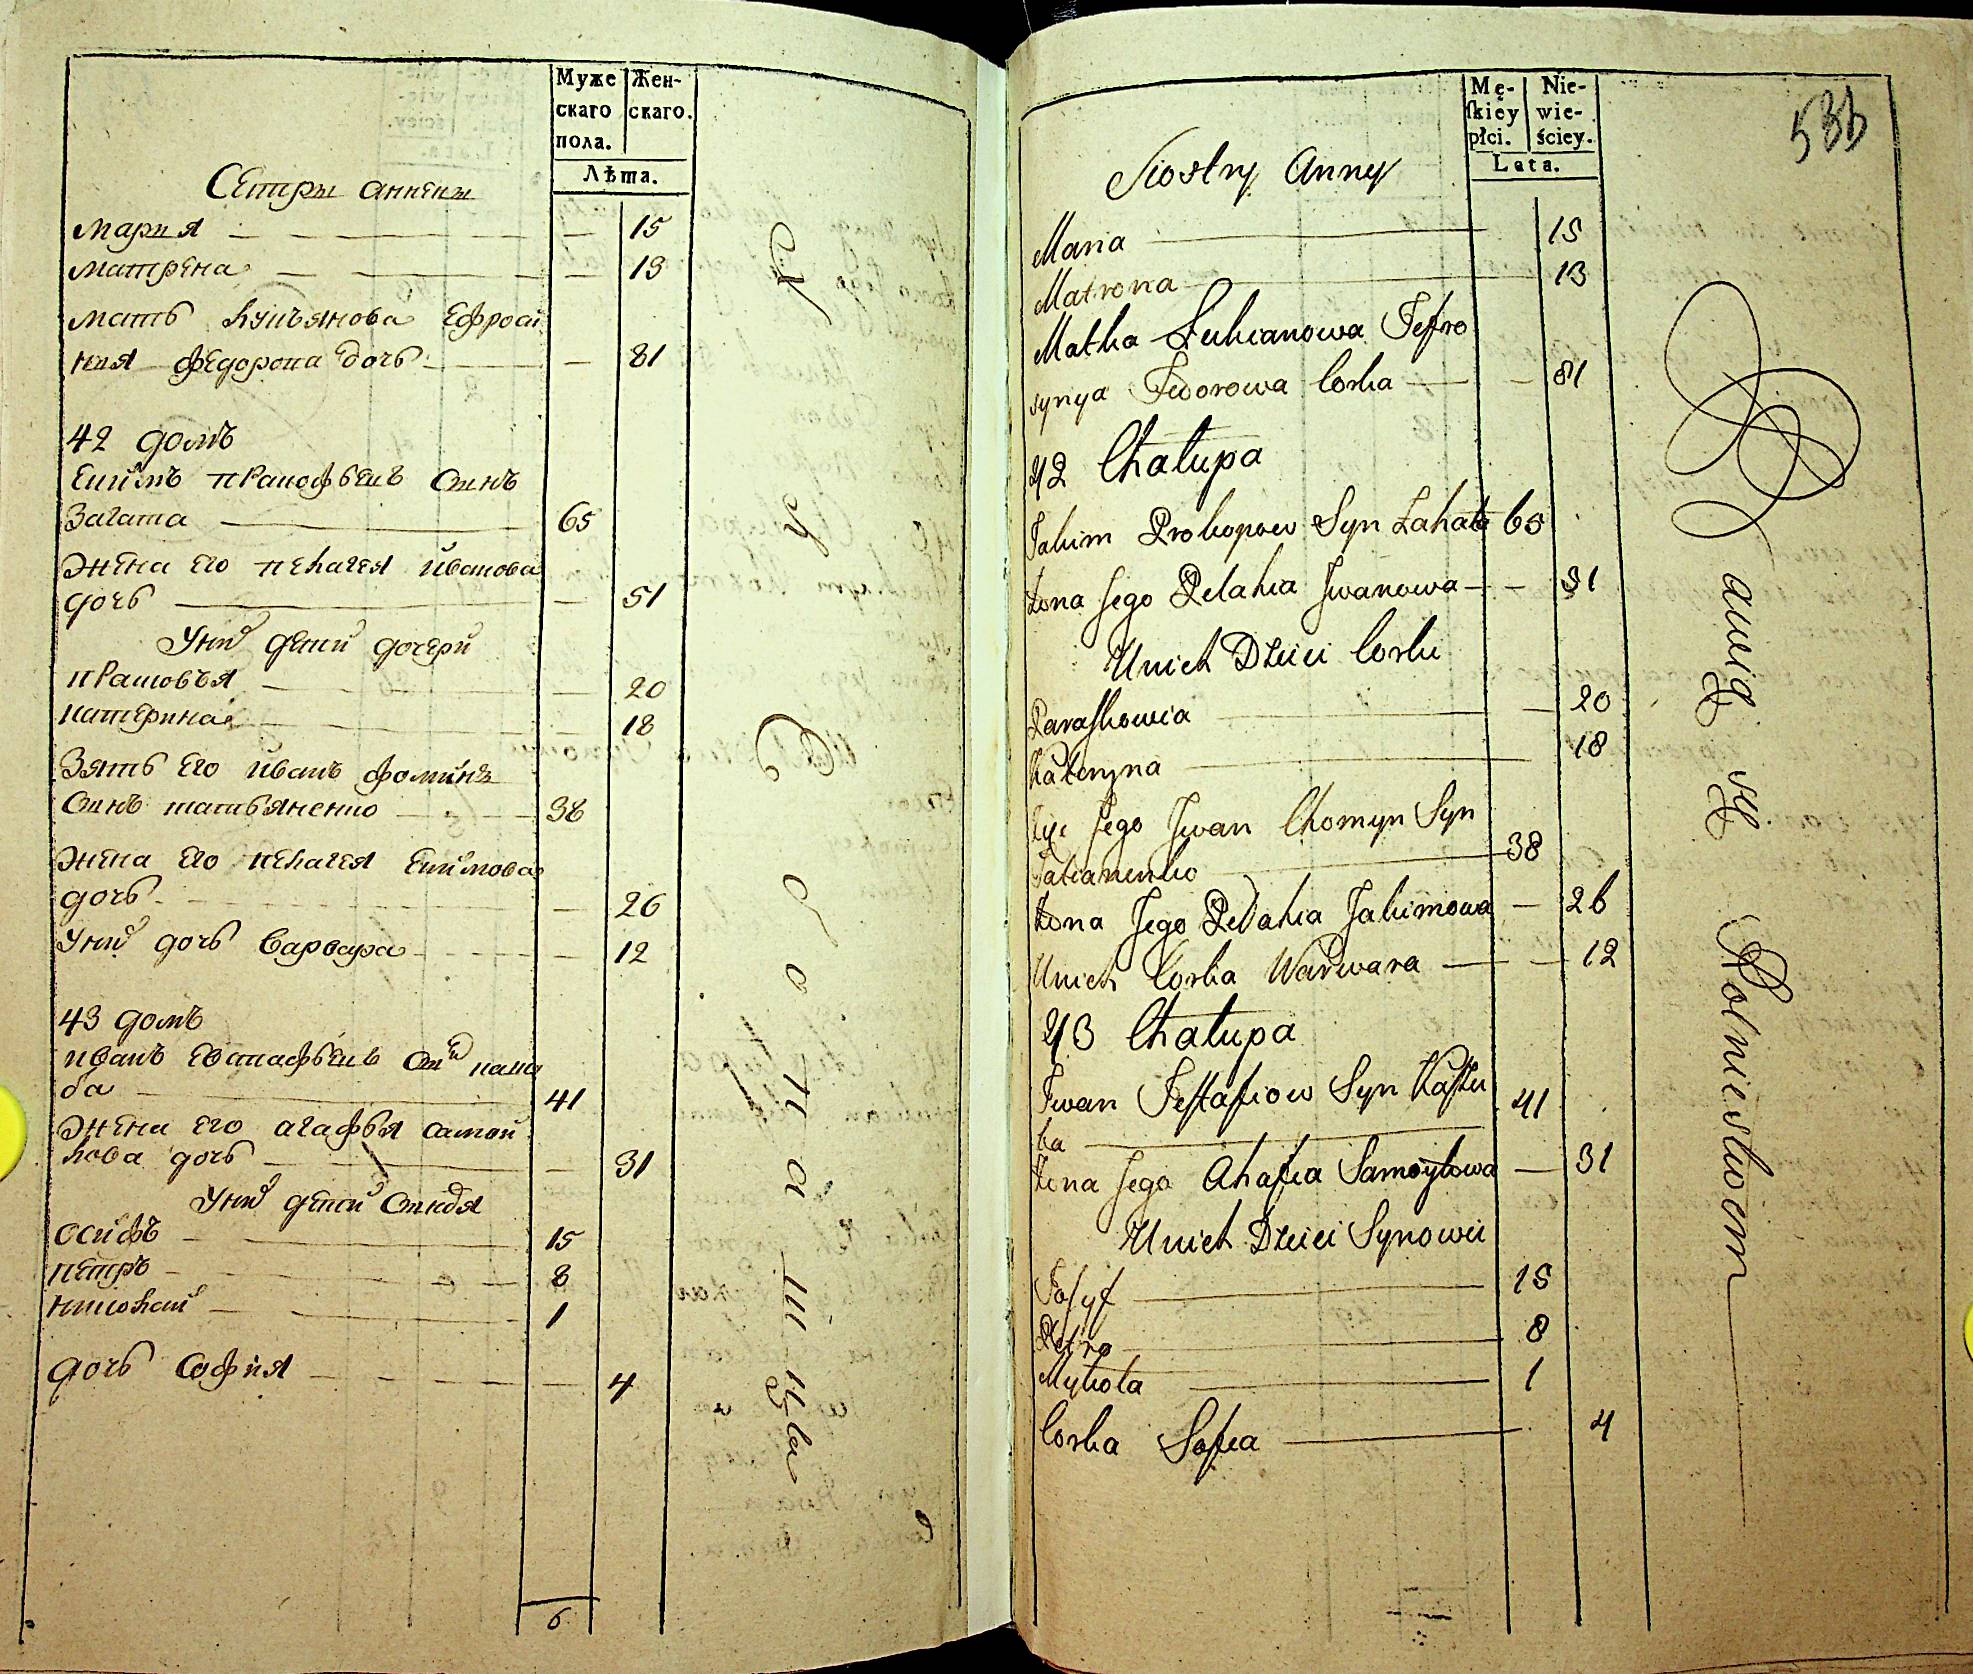 Муже
скаго
пола.
Жен-
скаго.
Лѣта.
Сетры аннены
Мария 15
Матрена 13
Мать Лукъянова Ефроси
ния федорова дочь 81
42 домъ
Екимъ пракофьевъ сынъ
Загата 65
Жена его пелагея иванова
дочь 51
У них дети дочери
прасковья 20
катерина 18
Зять его иванъ фоминъ
сынъ татьяненко 38
Жена его пелагея Екимова
дочь 26
У них дочь варвара 12
43 домъ
иванъ евстафьевъ сын кашу
ба 41
Жена его агафья самой
лова дочь 31
У них дети
осифъ 15
петръ 8
николай 1
дочь София 4
6
Mę-
ſkiey
płci.
Nie-
wie-
ściey.
Lata.
536
Siostry Anny
Maria 15
Matrona 13
Matka Łukianowa Jefro
synya Fedorowa Corka 81
42 Chałupa
Jakim Prokopow Syn Zahata 65
Żona Jego Pelahia Jwanowa 51
U nich Dzieci Corki
Paraſkowia 20
Kateryna 18
Jego Jwan Chomyn Syn
Tatianenko 38
Żona Jego Pelahia Jakimowa 26
U nich Corka Warwara 12
43 Chałupa
Jwan Jeſtafiow Syn Kaſzu
ba 41
Żona Jego Ahafia Samoyłowa 31
U nich Dzieci Synowie
Joſyf 15
Petro 8
Mykoła 1
Corka Sofia 4